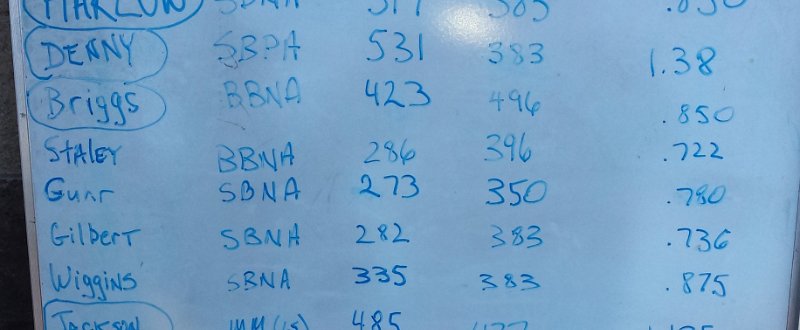 MARLOW SBNA 317 383 .830
DENNY SBPA 531 383 1.38
Briggs BBNA 423 496 .850
STALEY BBNA 286 396 .722
Gunr SBNA 273 350 .780
GilbERT SBNA 282 383 .736
Wiggins SBNA 335 383 .875
JACKSON 485